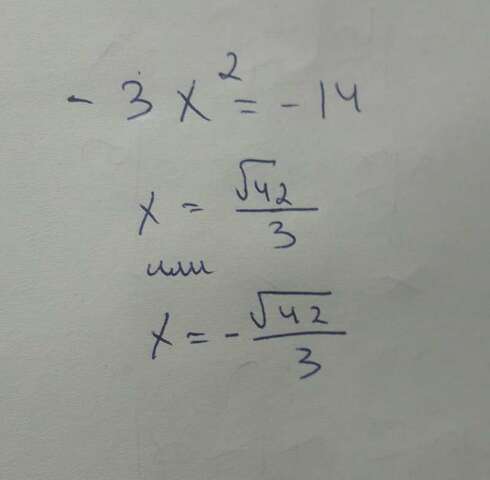 - 3x² = -14
x = √42/3
или
x = -√42/3